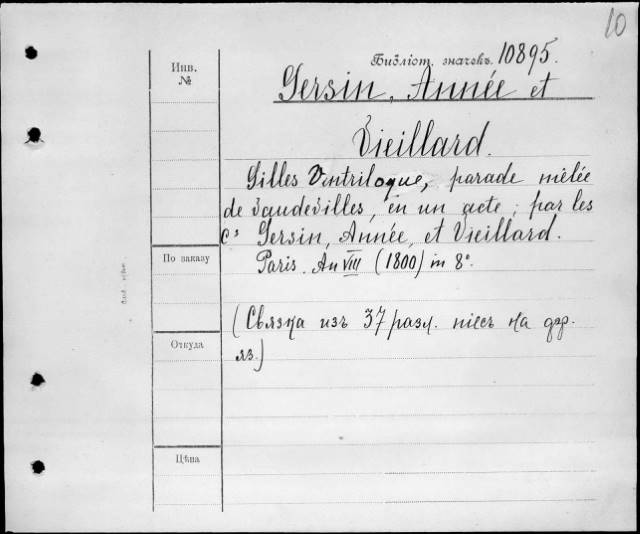 10
Инв.
№
Библіот. значекъ. 10895.
Gersin, Année et
Vieillard.
Gilles Ventriloque, parade mêlée
de vaudevilles, en un acte; par les
Cs Gersin, Année, et Vieillard.
По заказу
Paris. An VIII (1800) in 8°.
(Связка изъ 37 разл. піесъ на фр.
Откуда
яз.)
Цѣна